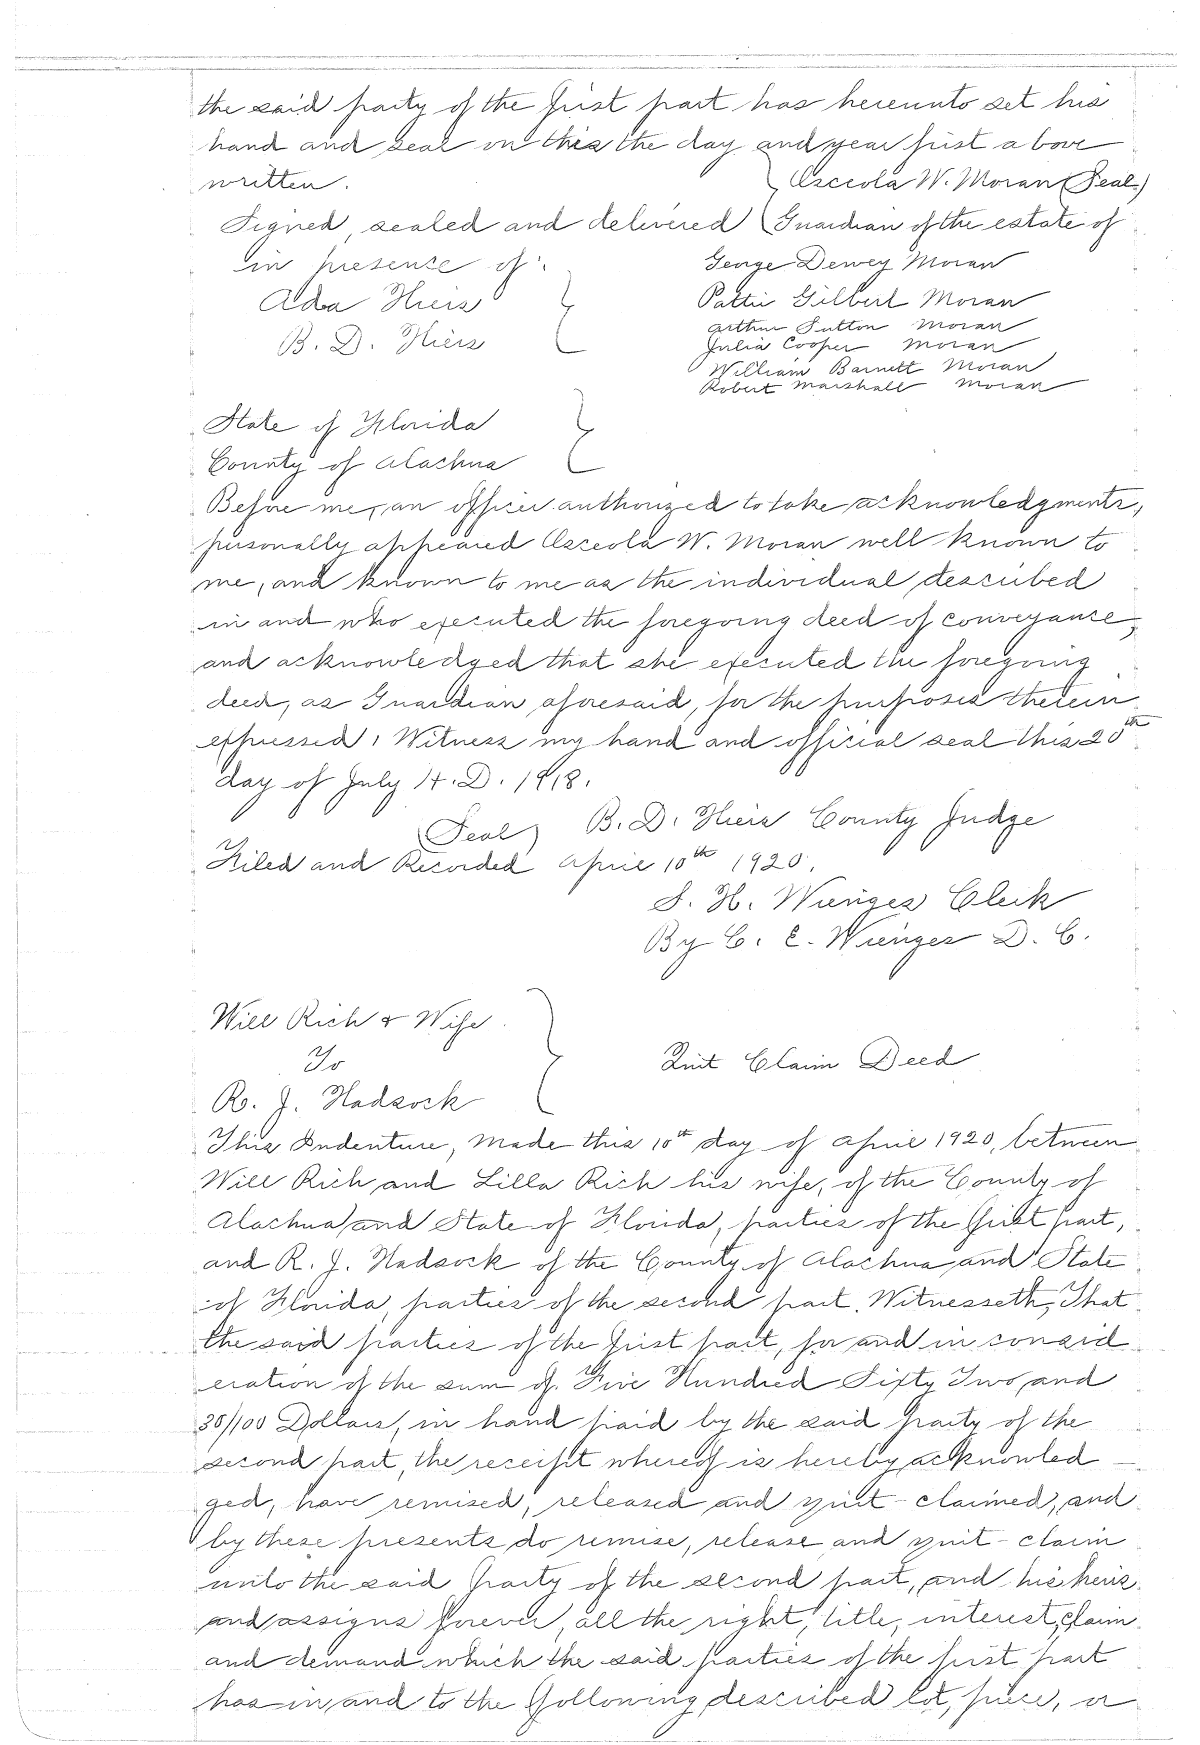 the said party of the first part has hereunto set his
hand and seal on this the day and year first above
written. Osceola W. Moran (Seal)
Signed, sealed and delivered Guardian of the estate of
in presence of: George Dewey Moran
Ada Hiers Pattie Gilbert Moran
Arthur Sutton Moran
B. D. Hiers Julia Cooper Moran
William Barnett Moran
Robert Marshall Moran
State of Florida
County of Alachua
Before me, an officer authorized to take acknowledgments,
personally appeared Osceola W. Moran well known to
me, and known to me as the individual described
in and who executed the foregoing deed of conveyance,
and acknowledged that she executed the foregoing
deed, as Guardian aforesaid, for the purposes therein
expressed, Witness my hand and official seal this 20th
day of July A. D. 1918.
(Seal) B. D. Hiers County Judge
Filed and Recorded April 10th 1920.
S. H. Wienges Clerk
By C. E. Wienges D. C.
Will Rich & Wife
To Quit Claim Deed
R. J. Hadsock
This Indenture, Made this 10th day of April 1920, between
Will Rich and Lilla Rich his wife, of the County of
Alachua and State of Florida, parties of the first part,
and R. J. Hadsock of the County of Alachua and State
of Florida, parties of the second part. Witnesseth, That
the said parties of the first part, for and in consid
eration of the sum of Five Hundred Sixty Two and
30/100 Dollars, in hand paid by the said party of the
second part, the receipt whereof is hereby acknowled-
ged, have remised, released and quit-claimed, and
by these presents do remise, release and quit-claim
unto the said party of the second part, and his heirs
and assigns forever, all the right, title, interest, claim
and demand which the said parties of the first part
has in and to the following described lot, piece, or